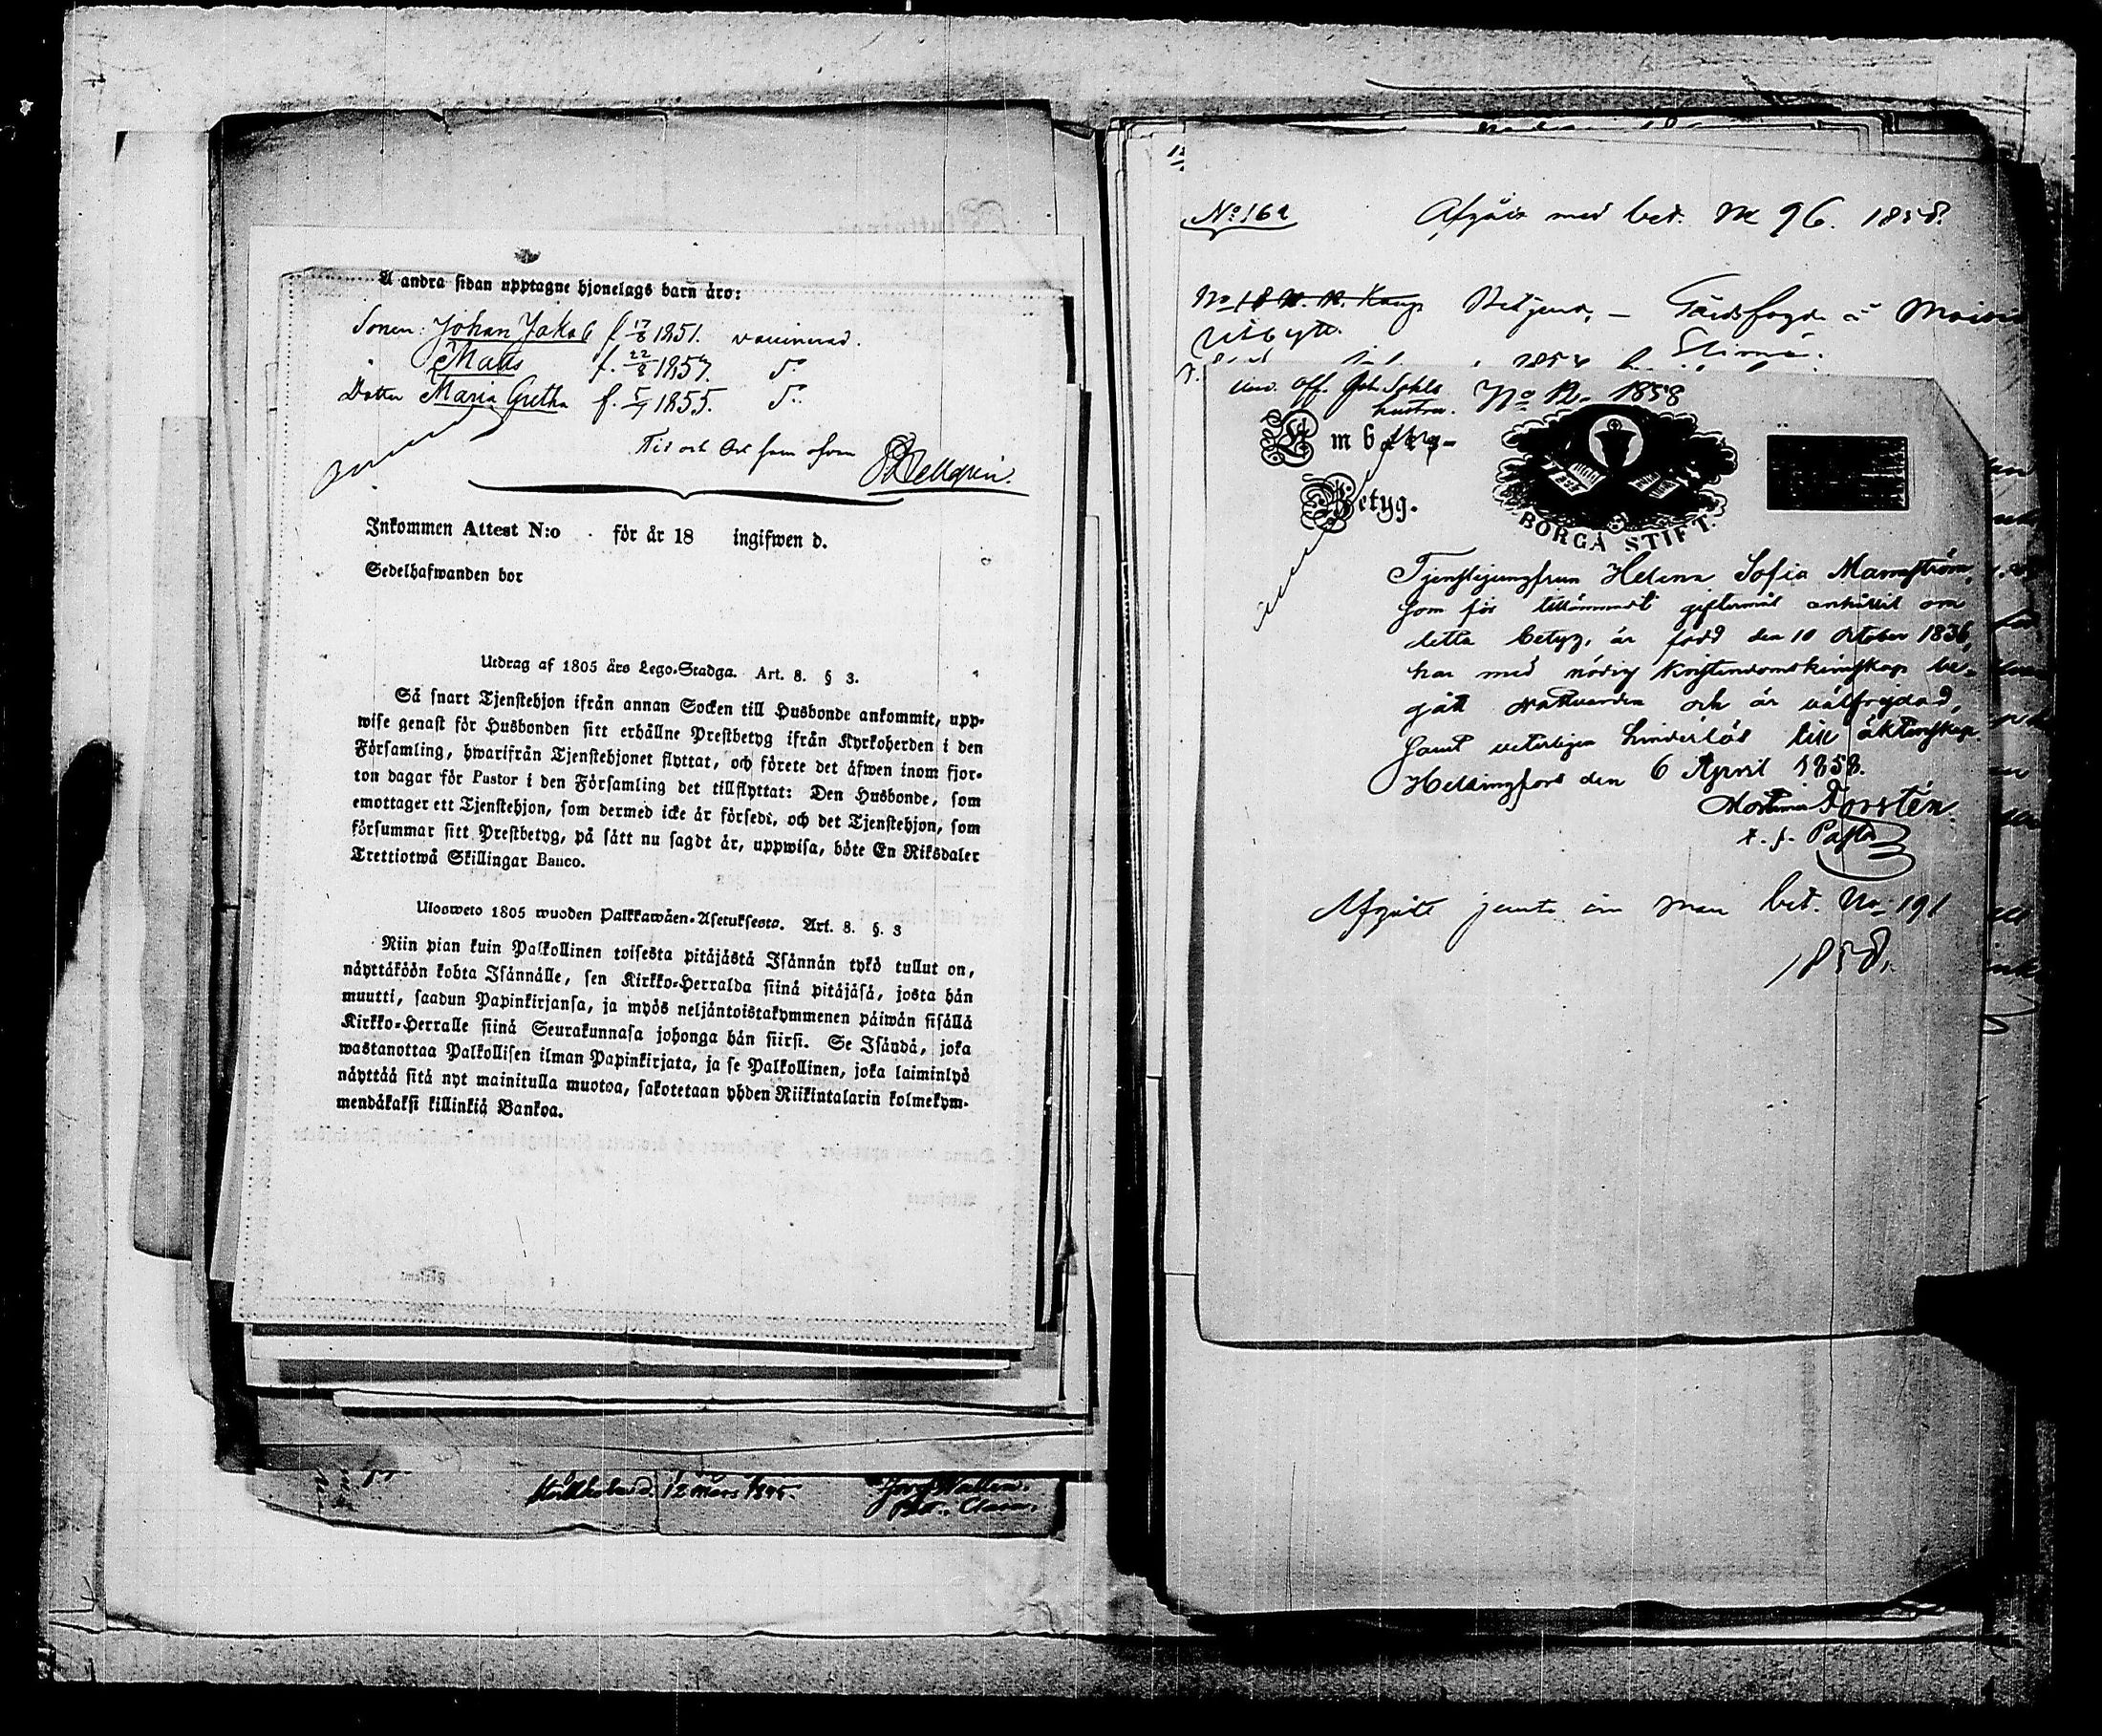 A andra sidan upptagne hjonelags barn äro:
Sonen: Johan Jakob f. 17/8 1851. vaccinerad.
" Matts f. 22/8 1857. d:o
Dotter Maria Gretha f. 5/7 1855. d:o
Tid och Ort som ofvan
Inkommen Attest N:o . för år 18 ingifwen d.
Sedelhafwanden bor
Utdrag af 1805 års Lego-Stadga. Art. 8. § 3.
Så snart Tjenstehjon ifrån annan Socken till Husbonde ankommit, upp-
wise genast för Husbonden sitt erhållne Prestbetyg ifrån Kyrkoherden i den
Församling, hwarifrån Tjenstehjonet flyttat, och förete det äfwen inom fjor-
ton dagar för Pastor i den Församling det tillflyttat: Den Husbonde, som
emottager ett Tjenstehjon, som dermed icke är försedt, och det Tjenstehjon, som
försummar sitt Prestbetyg, på sätt nu sagdt är, uppwisa, böte En Riksdaler
Trettiotwå Skillingar Banco.
Ulosweto 1805 wuoden Palkkawäen-Asetuksesta. Art. 8. §. 3
Niin pian kuin Palkollinen toisesta pitäjästä Isännän tykö tullut on,
näyttäköön kohta Isännälle, sen Kirkko-Herralda siinä pitäjäsä, josta hän
muutti, saadun Papinkirjansa, ja myös neljäntoistakymmenen päiwän sisällä
Kirkko-Herralle siinä Seurakunnasa johonga hän siirsi. Se Isändä, joka
wastanottaa Palkollisen ilman Papinkirjata, ja se Palkollinen, joka laiminlyö
näyttää sitä nyt mainitulla muotoa, sakotetaan yhden Riikintalarin kolmekym-
mendäkaksi killinkiä Bankoa.
Stockholm d. 12 mars 1845.
No 162
Afgått med bet. No 96. 1858.
No 18 Betjent, — Gårdsfogde å
Utbytt.
1854
No 12. 1858
hustru.
Ambets-
Betyg.
BORGÅ STIFT.
Tjenstejungfrun Helena Sofia Marmström,
som för tillämnadt giftermål anhållit om
detta betyg, är född den 10 October 1836,
har med nödig Kristendomskunskap be-
gått Nattvarden och är välfrejdad,
samt veterligen hinderlös till äktenskap.
Helsingfors den 6 April 1858.
Forstén.
t. f. Pastor
Afgått jemte sin man bet. No 191
1858.